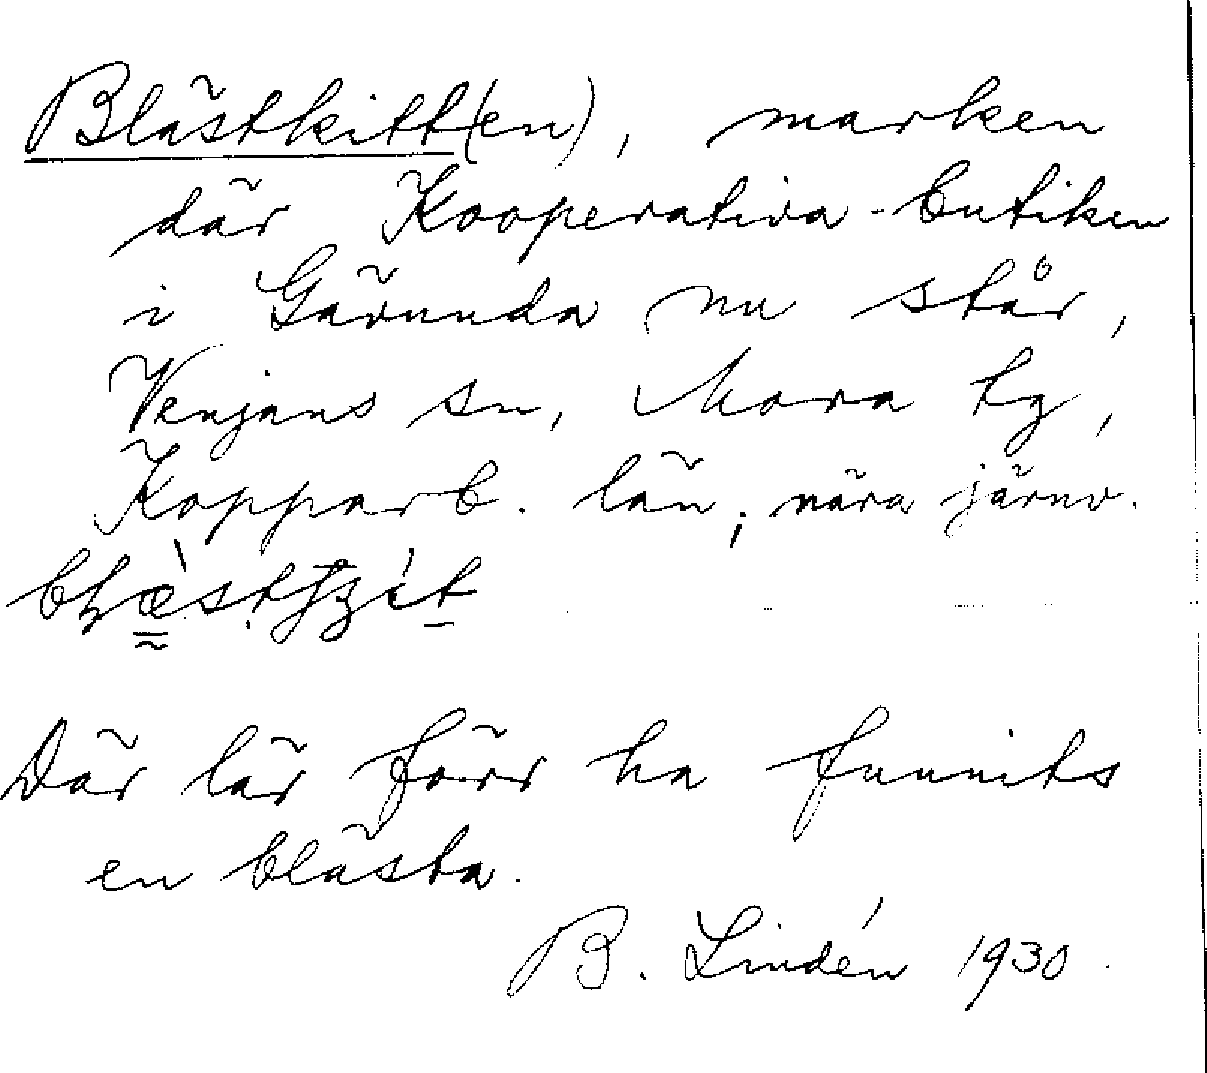 Blästkitt(en), marken
där Kooperativa-butiken
i Gävunda nu står,
Venjans sn, Mora tg,
Kopparb. län, nära järnv.
Där lär förr ha funnits
en blästa.
B. Lindén 1930.